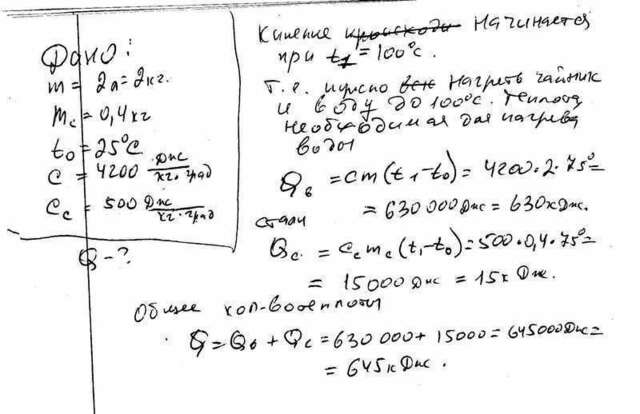 Дано:
m = 2л = 2кг.
mc = 0,4кг
t0 = 25°C
c = 4200 Дж/кг·град
cc = 500 Дж/кг·град
Q - ?
Кипение происходи начинается
при t1 = 100°C.
Т.е. нужно всю нагреть чайник
и воду до 100°C. Теплота
необходимая для нагрева
воды
Qв = cm(t1-t0) = 4200·2·75° =
= 630 000 Дж = 630 кДж.
стали
Qc. = cc mc (t1-t0) = 500·0,4·75° =
= 15000 Дж = 15к Дж.
Общее кол-во теплоты
Q = Qв + Qc = 630 000 + 15000 = 645000 Дж =
= 645к Дж.